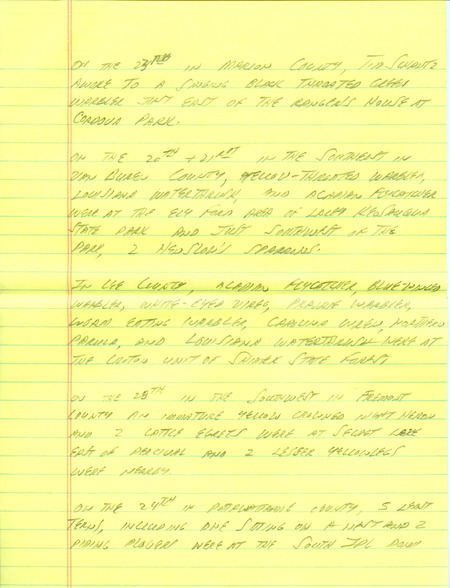 On the 23rd in Marion County, Tim Schantz
awoke to a singing Black Throated Green
Warbler just east of the Ranger's House at
Cordova Park.
On the 20th + 21st in the Southeast in
Van Buren County, Yellow-Throated Warbler,
Louisiana Waterthrush, and Acadian Flycatcher
were at the Ely Ford area of Lacey Keosauqua
State Park and just southwest of the
Park, 2 Henslow's Sparrows.
In Lee County, Acadian Flycatcher, Blue-winged
Warbler, White-Eyed Vireo, Prairie Warbler,
Worm Eating Warbler, Carolina Wren, Northern
Parula, and Louisiana Waterthrush were at
the Croton Unit of Shimek State Forest
On the 28th in the Southwest in Fremont
County an immature Yellow Crowned Night Heron
and 2 Cattle Egrets were at
East of Percival and 2 Lesser Yellowlegs
were nearby
On the 24th in Pottawattamie County, 5 Least
Terns, including one sitting on a nest and 2
Piping Plovers were at the South IPL Pond